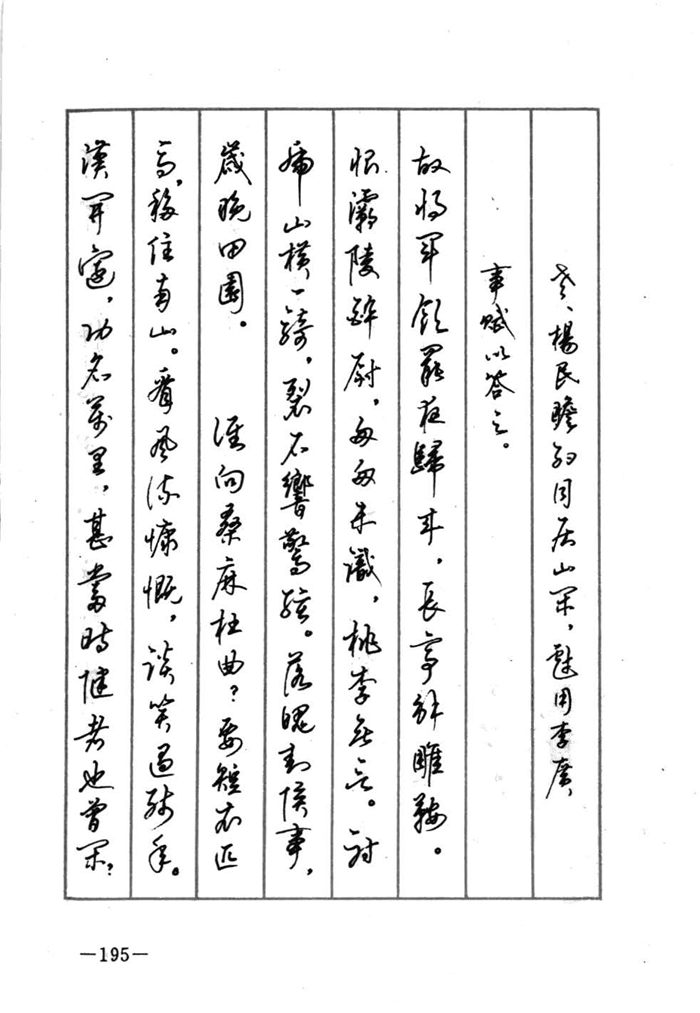 老、楊民瞻約同居山間，戲用李廣
事賦以答之。
故將軍飲罷夜歸來，長亭解雕鞍。
恨灞陵醉尉，匆匆未識，桃李無言。射
虎山橫一騎，裂石響驚弦。落魄封侯事，
歲晚田園。　誰向桑麻杜曲？要短衣匹
馬，移住南山。看風流慷慨，談笑過殘年。
漢開邊，功名萬里，甚當時健者也曾閑？
—195—